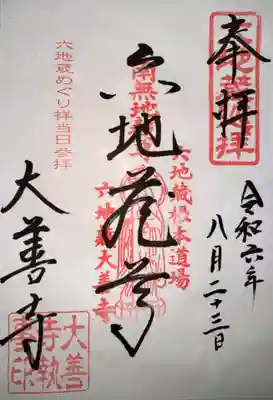 奉拝
令和六年
八月二十三日
六地蔵尊
六地蔵根本道場
六地蔵大善寺
六地蔵めぐり祥当日参拝
大善寺
大善
寺執
事印